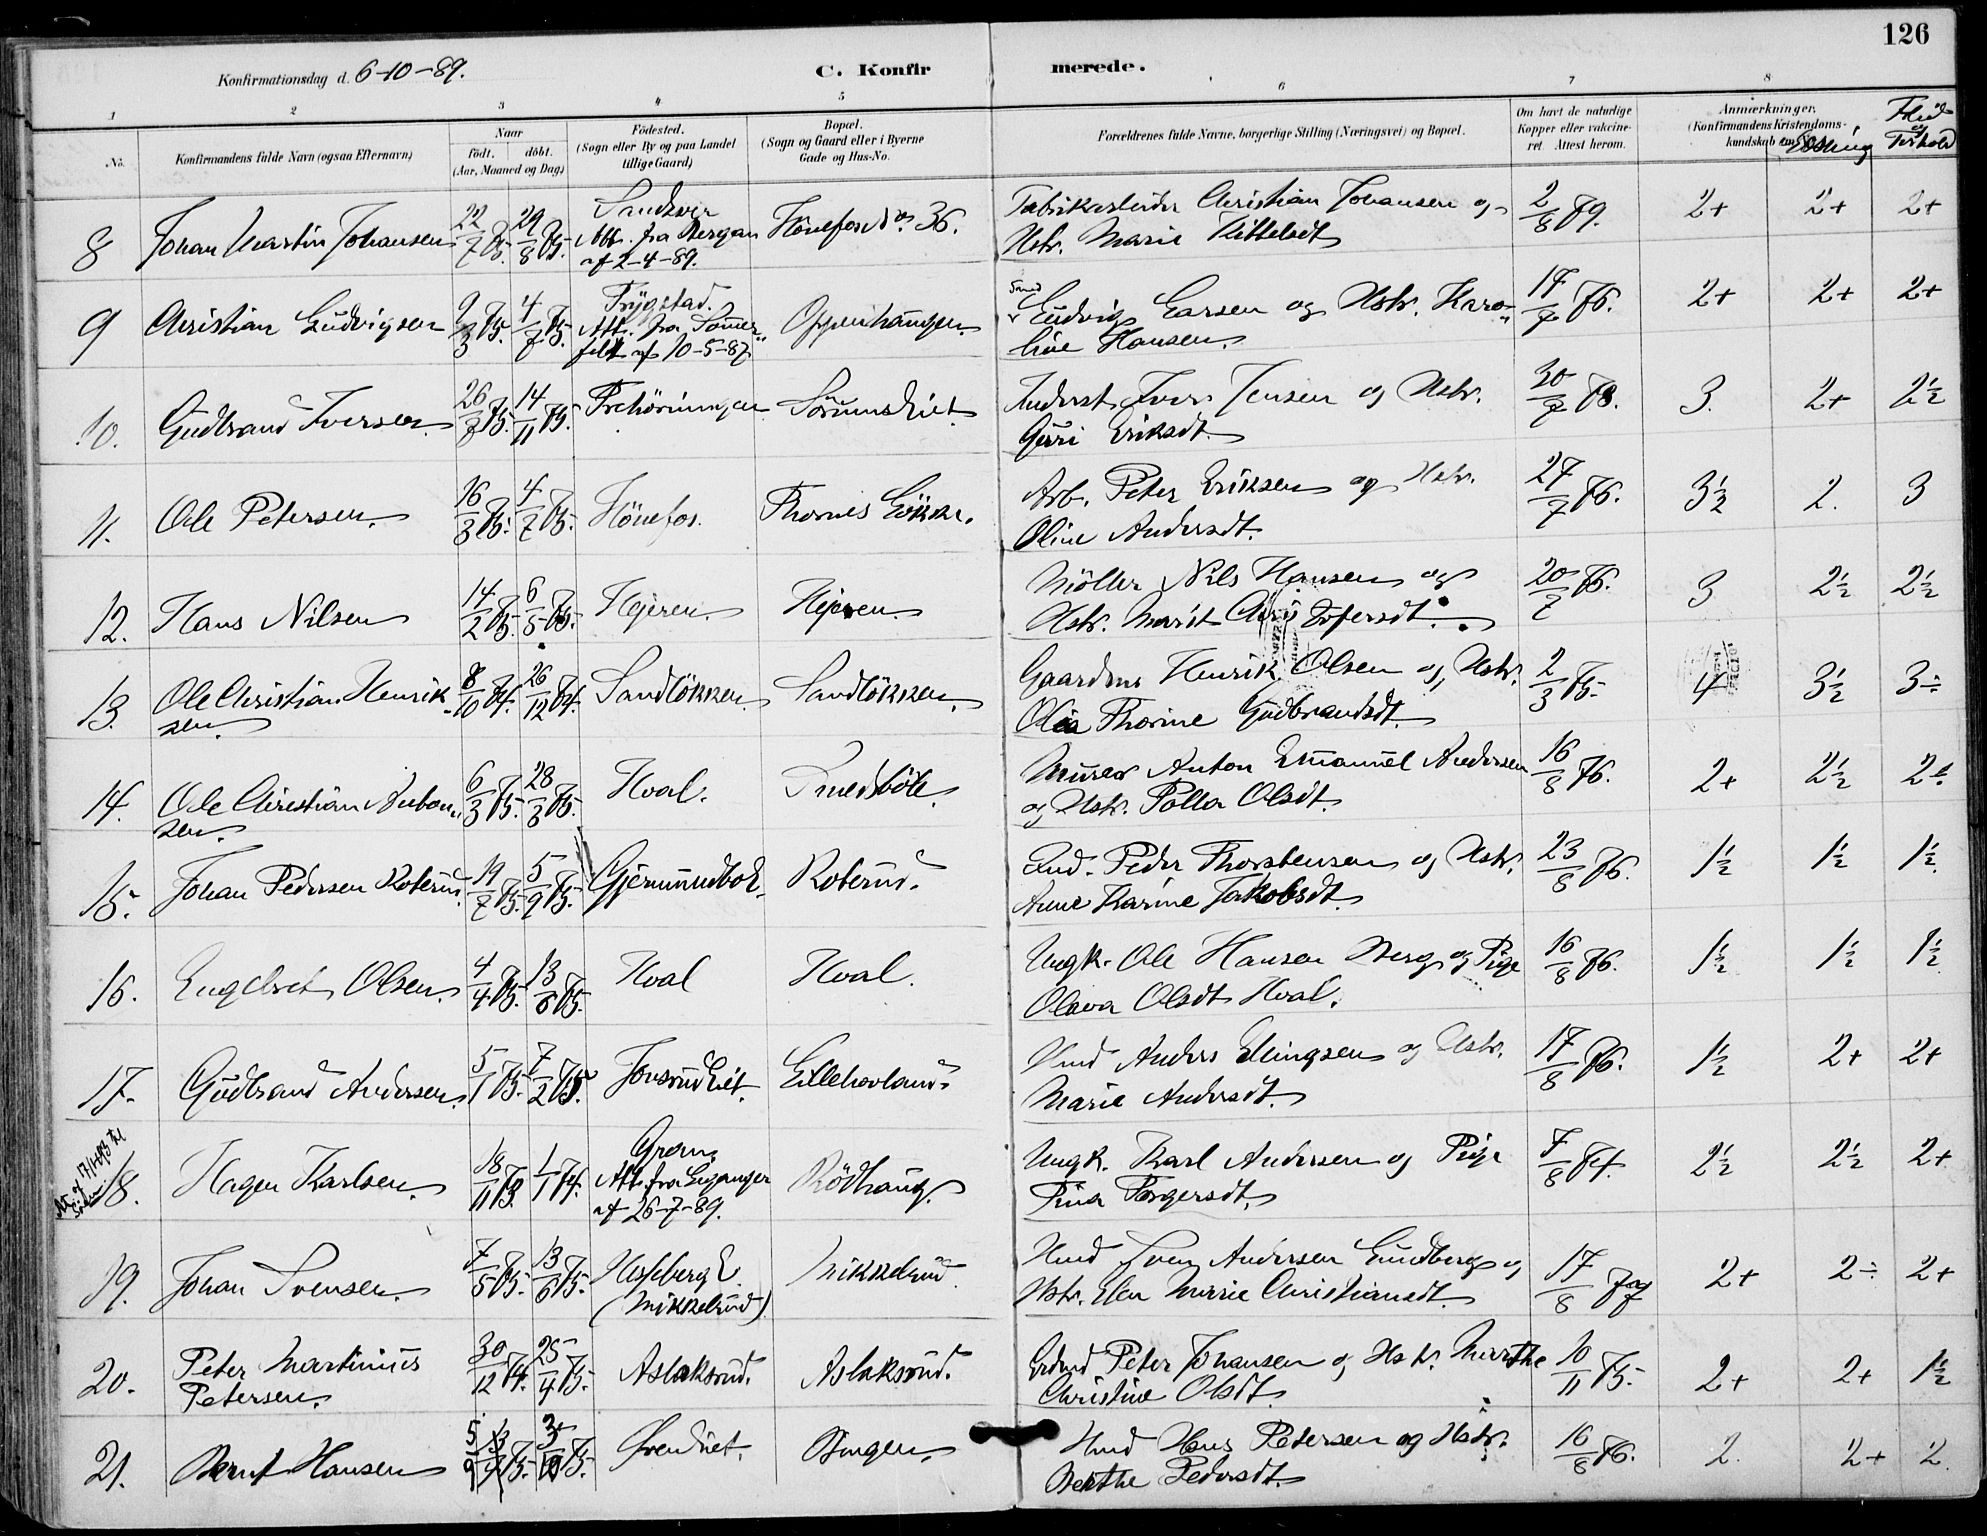 126
Konfirmationsdag d. 6-10-89.
C. Konfirmerede.
1 2 3 4 5 6 7 8
No.
Konfirmandens fulde Navn (ogsaa Efternavn)
Naar
födt. döbt.
(Aar, Maaned og Dag)
Födested.
(Sogn eller By og paa Landet
tillige Gaard)
Bopæl.
(Sogn og Gaard eller i Byerne
Gade og Hus-No.
Forældrenes fulde Navne, borgerlige Stilling (Næringsvei) og Bopæl.
Om havt de naturlige
Kopper eller vakcine-
ret. Attest herom.
Anmærkninger.
(Konfirmandens Kristendoms-
kundskab
Flid og Forhold
8 Johan Martin Johansen 22/7 75. 29/8 75. Sandsvær
Att. fra Bergan
af 2-4-89. Hönefos No. 36. Fabrikarbeider Christian Johansen og
Hstr. Marie Kittelsdt 2/8 79. 2+ 2+ 2+
9 Christian Ludvigsen 9/3 75. 4/7 75. Trygstad.
Att. fra Sommer-
feldt af 10-5-87 Oppenhaugen. Smed Ludvig Larsen og Hstr. Karo-
line Hansen. 17/7 76. 2+ 2+ 2+
10. Gudbrand Iversen 26/7 75. 14/11 75. Trehörningen Sörumseiet. Inderst Iver Jensen og Hstr.
Guri Eriksdt. 30/7 78. 3. 2+ 2½
11. Ole Petersen. 16/3 75. 4/7 75. Hönefos. Thornes Lökke. Arb. Peter Eriksen og Hstr.
Oline Andersdt. 27/7 76. 3½ 2. 3
12. Hans Nilsen 14/2 75. 6/5 75. Hejeren. Hejeren. Möller Nils Hansen og
Hstr. Marit 20/7 76. 3 2½ 2½
13. Ole Christian Henrik-
sen. 8/10 74. 26/12 74. Sandlökken Sandlökken. Gaardm. Henrik Olsen og Hstr.
Olea Thorine Gudbrandsdt. 2/3 75. 4 3½ 3÷
14. Ole Christian Anton-
sen. 6/3 75. 28/3 75. Hval. Smedsböle. Murer Anton Emanuel Andersen
og Hstr. Polla Olsdt. 16/8 76. 2+ 2½ 2÷
15. Johan Pedersen Roterud. 19/7 75. 5/9 75. Gjermundbo E. Roterud. Ind. Peder Thorstensen og Hstr.
Anne Karine Jakobsdt. 23/8 76. 1½ 1½ 1½
16. Engebret Olsen. 4/4 75. 13/6 75. Hval Hval. Ungk. Ole Hansen Berg og Pige
Olava Olsdt Hval. 16/8 76. 1½ 1½ 1½
17. Gudbrand Andersen. 5/1 75. 7/2 75. Jonsrudeiet. Lillehovland. Hmd Anders Ellingsen og Hstr.
Marie Andersdt. 17/8 76. 1½ 2+ 2+
18. Hagen Karlsen. 18/11 73. 1/1 74. Gran.
Att. fra Leganger
af 26-7-89. Rödhaug. Ungk. Karl Andersen og Pige
Pina Torgersdt. 7/8 74. 2½ 2½ 2+
19. Johan Svensen. 7/5 75. 13/6 75. Hesleberg E.
(Mikkelrud) Mikkelrud. Hmd Sven Andersen Lundberg og
Hstr. Elen Marie Christiansdt. 17/8 77 2+ 2÷ 2+
20. Peter Martinius
Petersen. 30/12 74. 25/4 75. Aslaksrud. Aslaksrud. Peter Johansen og Hstr. Marthe
Christine Olsdt. 10/11 75. 2+ 2+ 1½
21. Bernt Hansen 5/9 75. Bingen. Hmd Hans Pedersen og Hstr.
Berthe Pedersdt. 16/8 76. 2. 2+ 2.